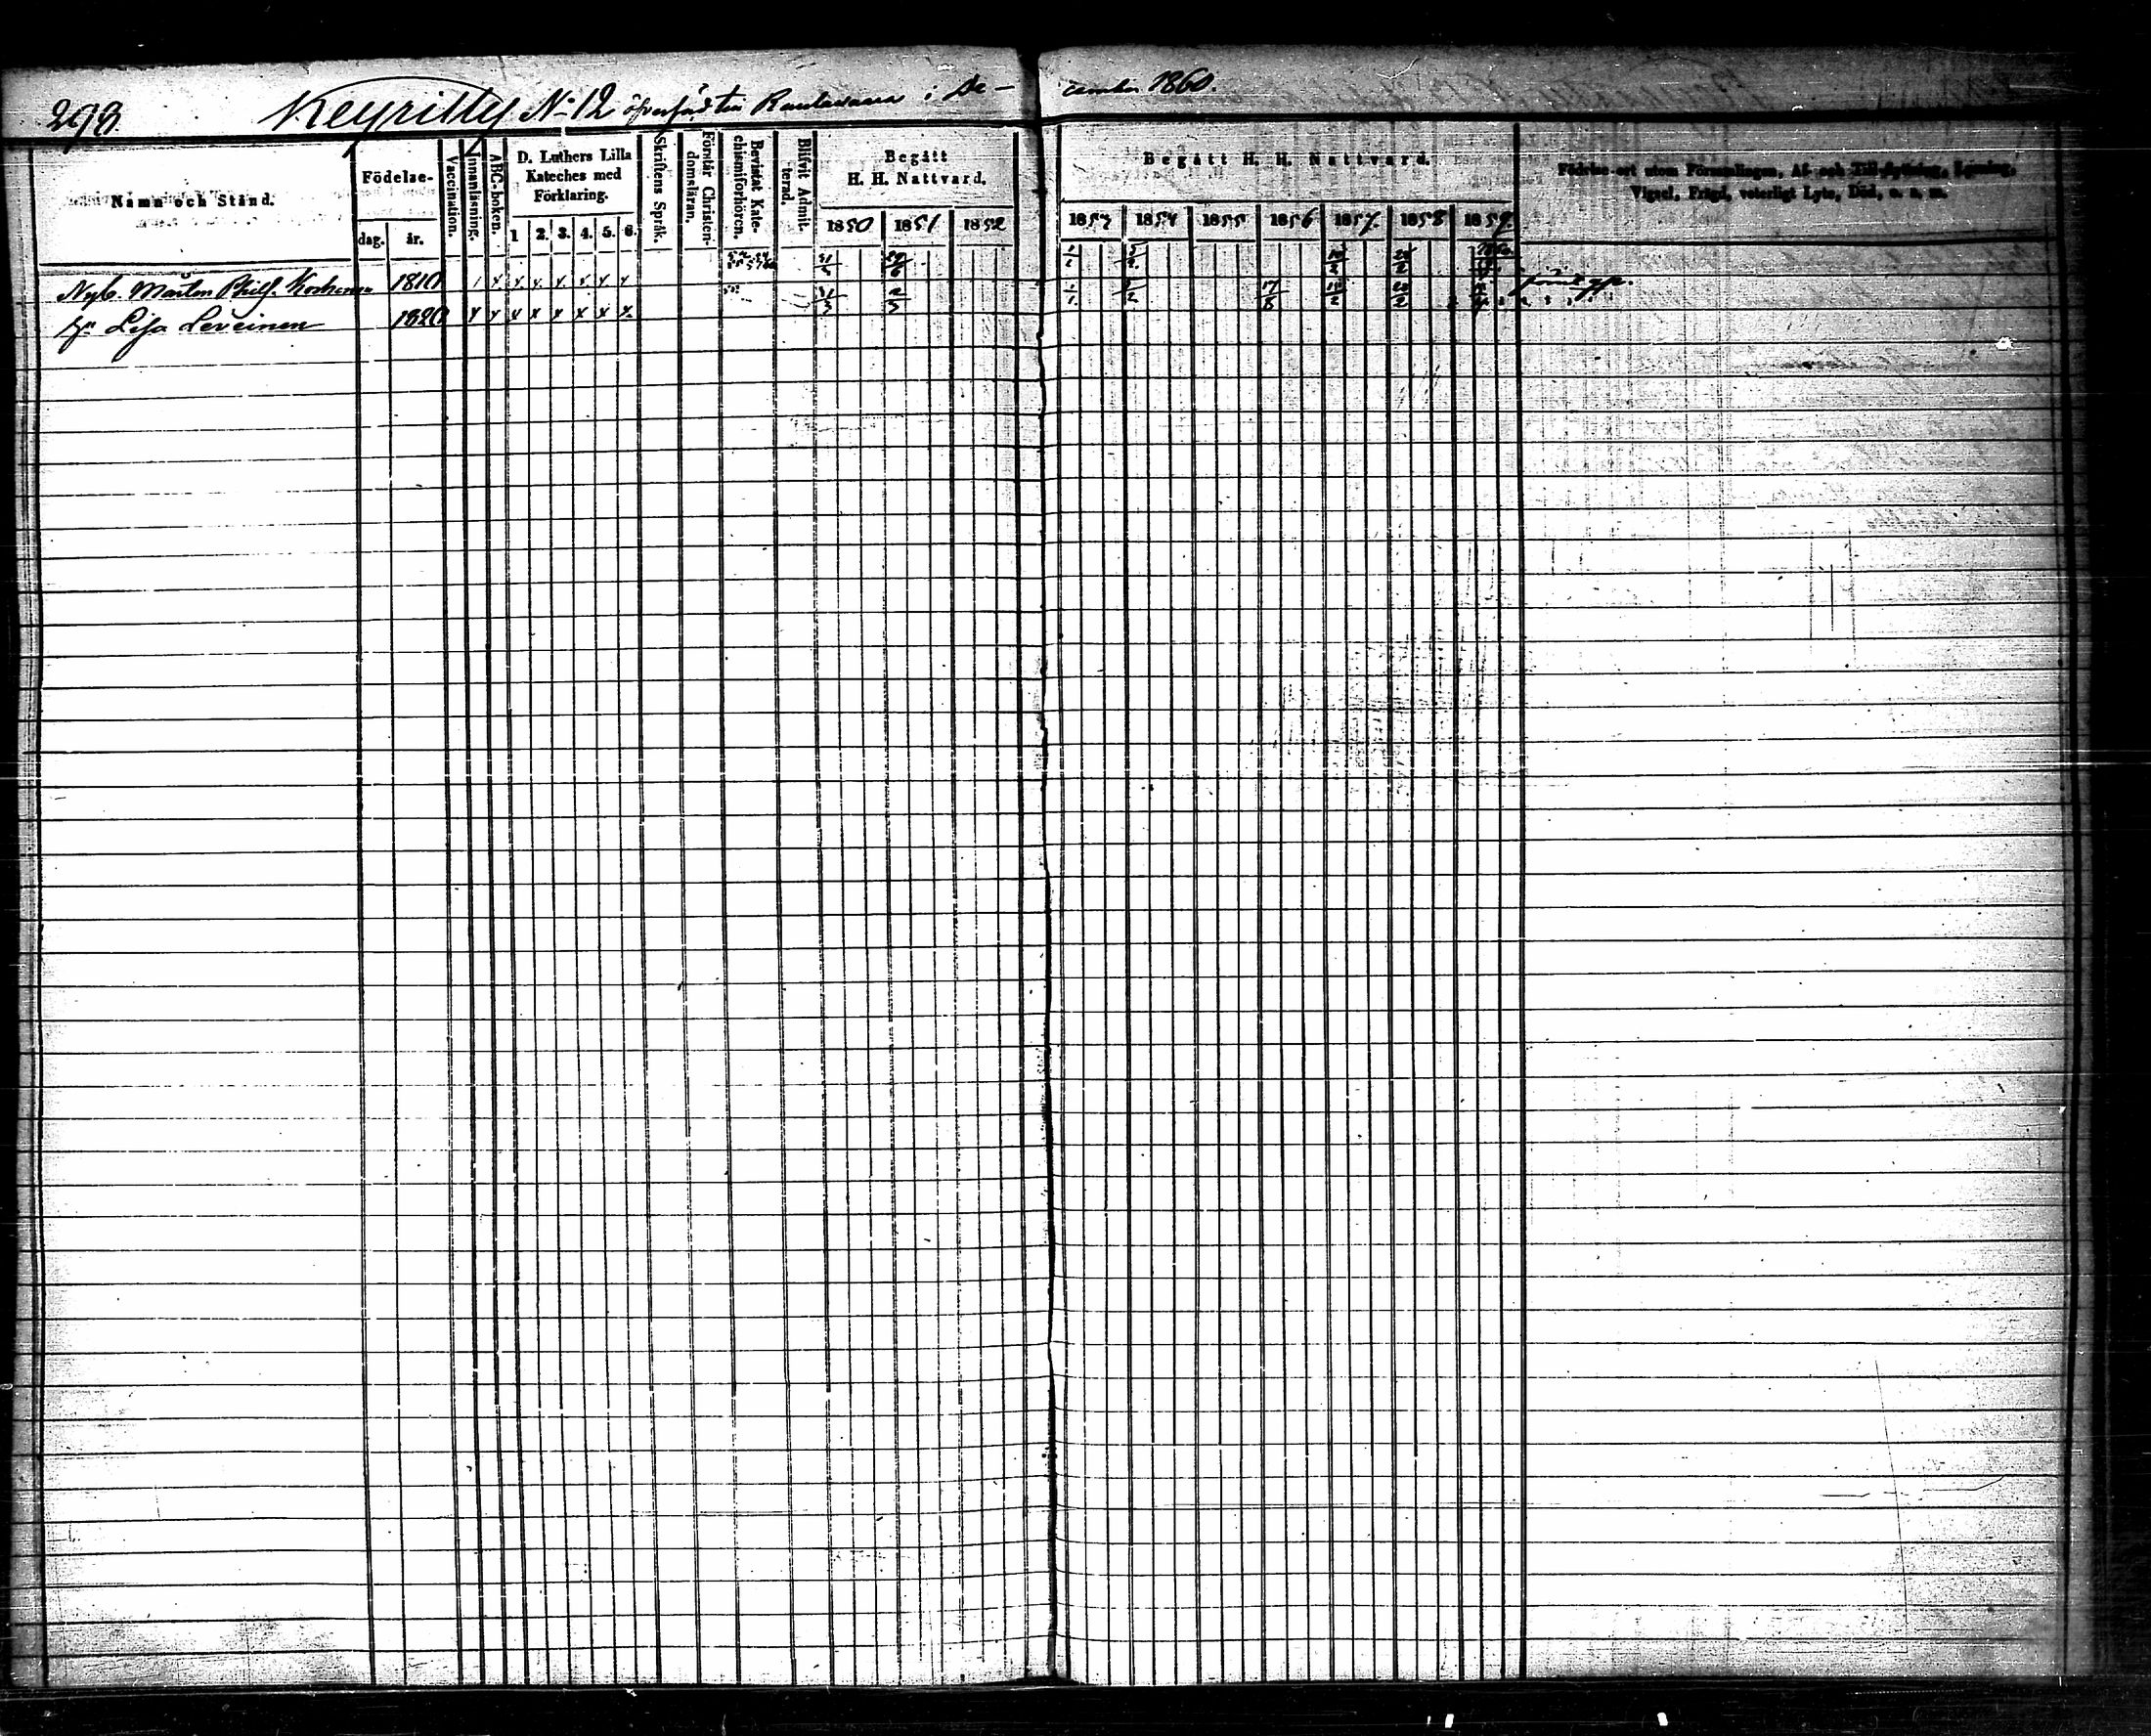 298
Keyritty N:o 12 öfverförd till Rautavaara i De- cember 1860.
Namn och Stånd.
Födelse-
dag. år.
Vaccination.
Innanläsning.
ABC-boken.
D. Luthers Lilla
Kateches med
Förklaring.
1 2. 3. 4. 5. 6.
Skriftens Språk.
Förstår Christen-
domsläran.
Bevistat Kate-
chismiförhören.
Blifvit Admit-
terad.
Begått
H. H. Nattvard.
1850 1851 1852
Begått H. H. Nattvard.
1853 1854 1855 1856 1857 1858 1859
Födelse-ort utom Församlingen, Af- och Till-flyttning, Lysning,
Vigsel, Frägd, veterligt Lyte, Död, o. s. m.
Nyb. Mårten Phils. Korhonen 1810
hu Lisa Leveinen 1820